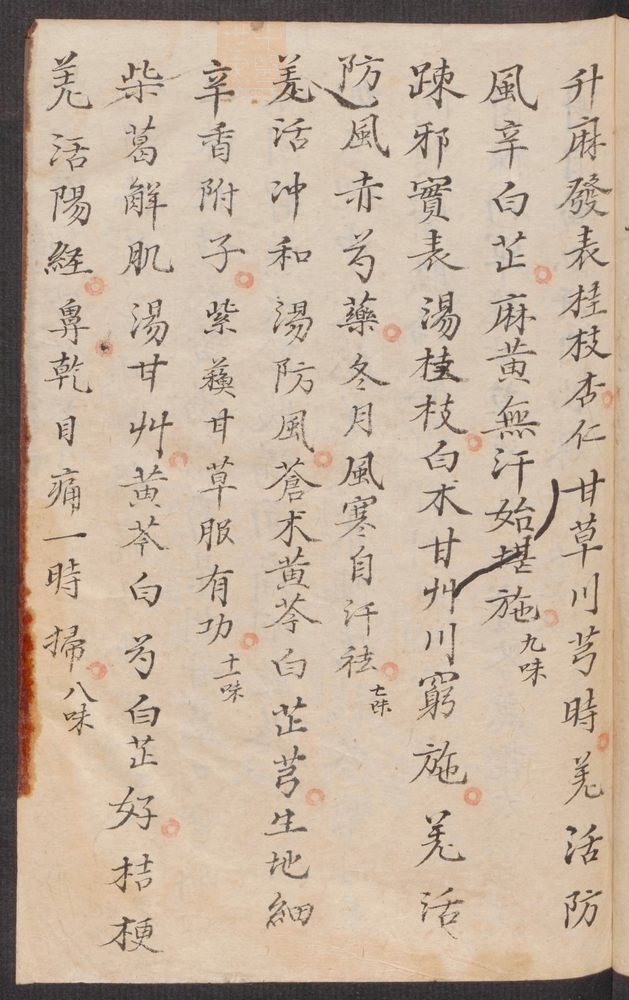 升麻發表桂枝杏仁甘草川芎時羌活防
風辛白芷麻黃無汗始堪施九味
踈邪實表湯桂枝白朮甘艸川窮施羌活
防風赤芍藥冬月風寒自汗祛七味
羌活冲和湯防風蒼朮黃芩白芷芎生地細
辛香附子紫蘓甘草服有功十一味
柴葛解肌湯甘艸黃芩白芍白芷好桔梗
羌活陽經鼻乾目痛一時掃八味